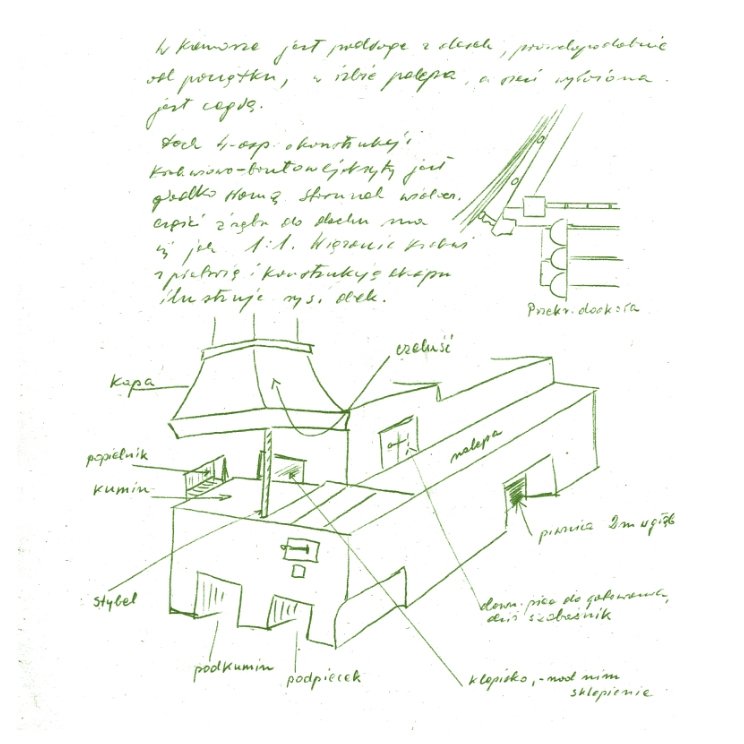 W komorze jest podłoga z desek, prawdopodobnie
od początku, w izbie polepa, a sień wyłożona
jest cegłą.
Dach 4-osp. o konstrukcji
krokwiowo-
jest
gładko słomą. Stosunek
części zrębu do dachu ma
się jak 1:1. Wiązanie krokwi
z płatwią i konstrukcję okapu
ilustruje rys.
Przekr.
czeluść
kapa
nalepa
popielnik
kumin
piwnica 2m w głąb
stybel
dawn. piec do gotowania,
dziś szabaśnik
podkumin
podpiecek
klepisko, - nad nim
sklepienie